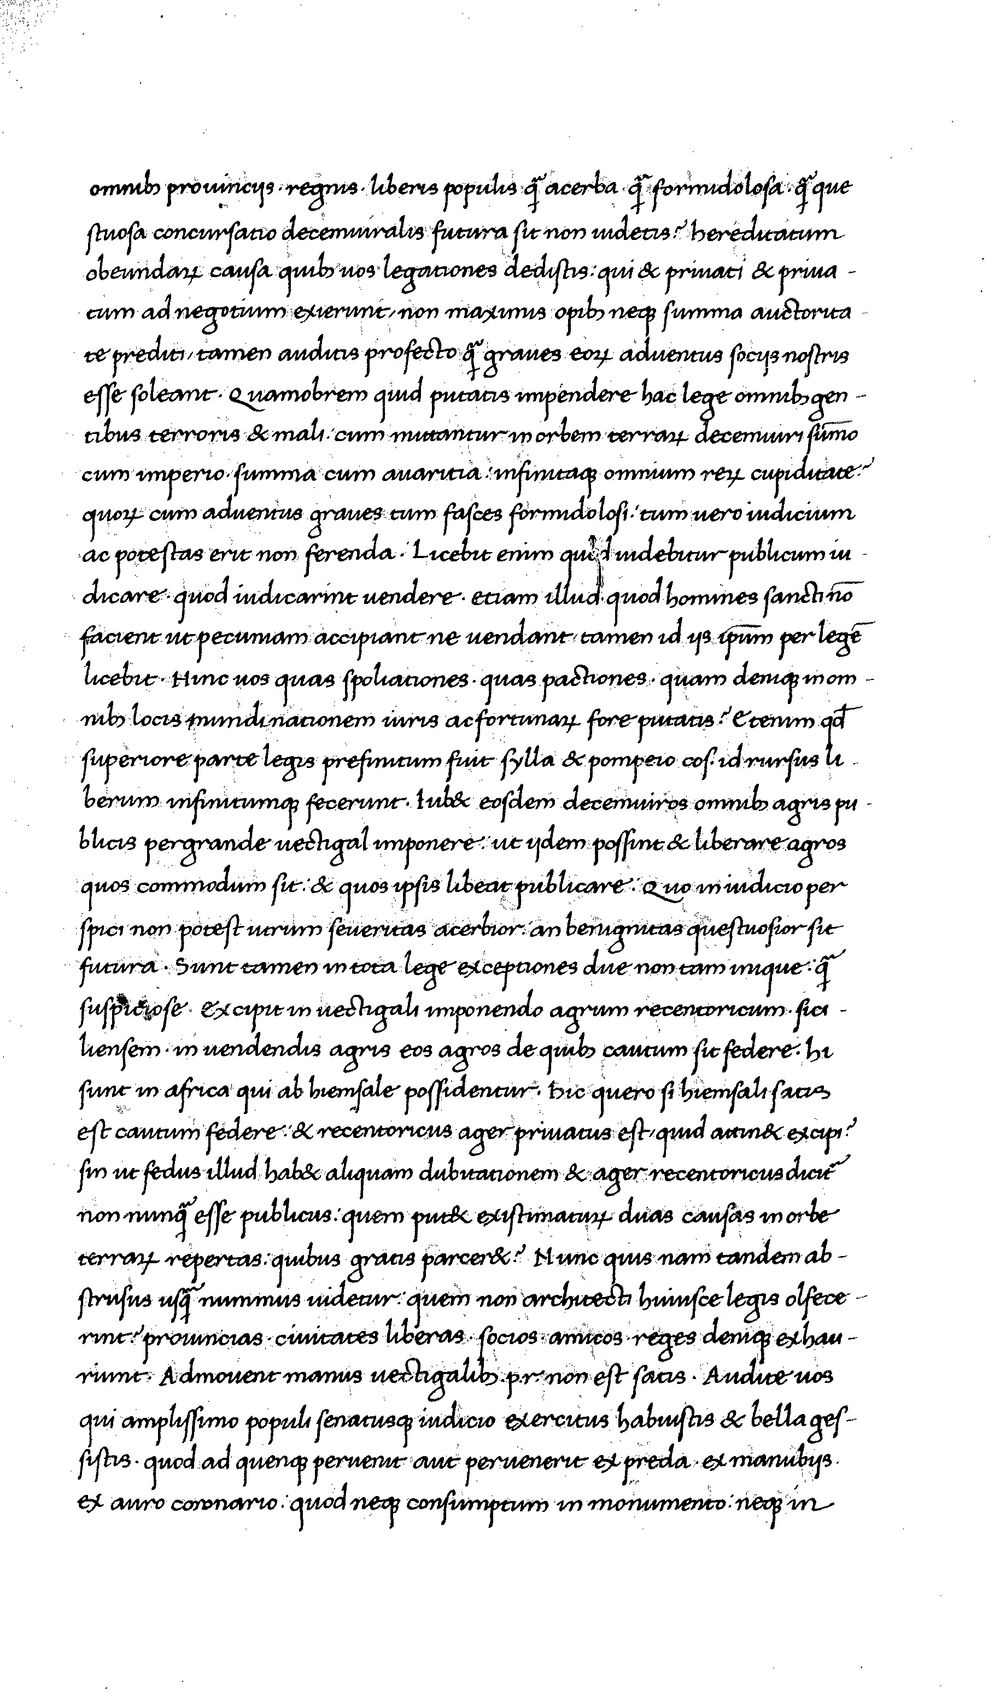 omnibꝫ prouincijs · regnis · liberis populis qᷓ acerba · qᷓ formidolosa · qᷓ que
stuosa concursatio decemuiralis futura sit non uidetis? hereditatum
obeundaꝝ causa quibꝫ uos legationes dedistis: qui & priuati & priua-
tum ad negotium exierunt, non maximis opibꝫ neqꝫ summa auctorita
te prediti, tamen auditis profecto qᷓ graues eoꝝ aduentus socijs nostris
esse soleant. Quamobrem quid putatis impendere hac lege omnibꝫ gen-
tibus terroris & mali: cum mittantur in orbem terraꝝ decemuiri sūmo
cum imperio · summa cum auaritia: infinitaqꝫ omnium reꝝ cupiditate?
quoꝝ cum aduentus graues tum fasces formidolosi: tum uero iudicium
ac potestas erit non ferenda. Licebit enim quid uidebitur publicum iu-
dicare · quod iudicarint uendere · etiam illud · quod homines sancti nō
facient ut pecuniam accipiant ne uendant, tamen id ijs ip̄um per legē
licebit. Hinc uos quas spoliationes · quas pactiones · quam deniqꝫ in om-
nibꝫ locis nundinationem iuris ac fortunaꝝ fore putatis? Etenim qd̄
superiore parte legis prefinitum fuit sylla & pompeio cos. id rursus li-
berum infinitumqꝫ fecerunt. Iub& eosdem decemuiros omnibꝫ agris pu-
blicis pergrande uectigal imponere: ut ijdem possint & liberare agros
quos commodum sit: & quos ipsis libeat publicare. Quo in iudicio per
spici non potest utrum seueritas acerbior: an benignitas questuosior sit
futura. Sunt tamen in tota lege exceptiones due non tam inique: qᷓ
suspiciose. Excipit in uectigali imponendo agrum recentoricum · sici-
liensem · in uendendis agris eos agros de quibꝫ cautum sit federe. hi
sunt in africa qui ab hiemsale possidentur. Hic quero si hiemsali satis
est cautum federe: & recentoricus ager priuatus est, quid attin& excipi?
sin ut fedus illud hab& aliquam dubitationem & ager recentoricus dicit᷑
non nunqᷓ esse publicus: quem put& existimatuꝝ duas causas in orbe
terraꝝ repertas: quibus gratis parcer&? Nunc quis nam tandem ab-
strusus usqᷓ nummus uidetur: quem non architecti huiusce legis olfece-
rint? prouincias · ciuitates liberas · socios · amicos · reges deniqꝫ exhau-
riunt. Admouent manus uectigalibꝫ · p.r. non est satis. Audite uos
qui amplissimo populi senatusqꝫ iudicio exercitus habuistis & bella ges-
sistis · quod ad quenqꝫ peruenit aut peruenerit ex preda · ex manubijs ·
ex auro coronario: quod neqꝫ consumptum in monumento: neqꝫ in